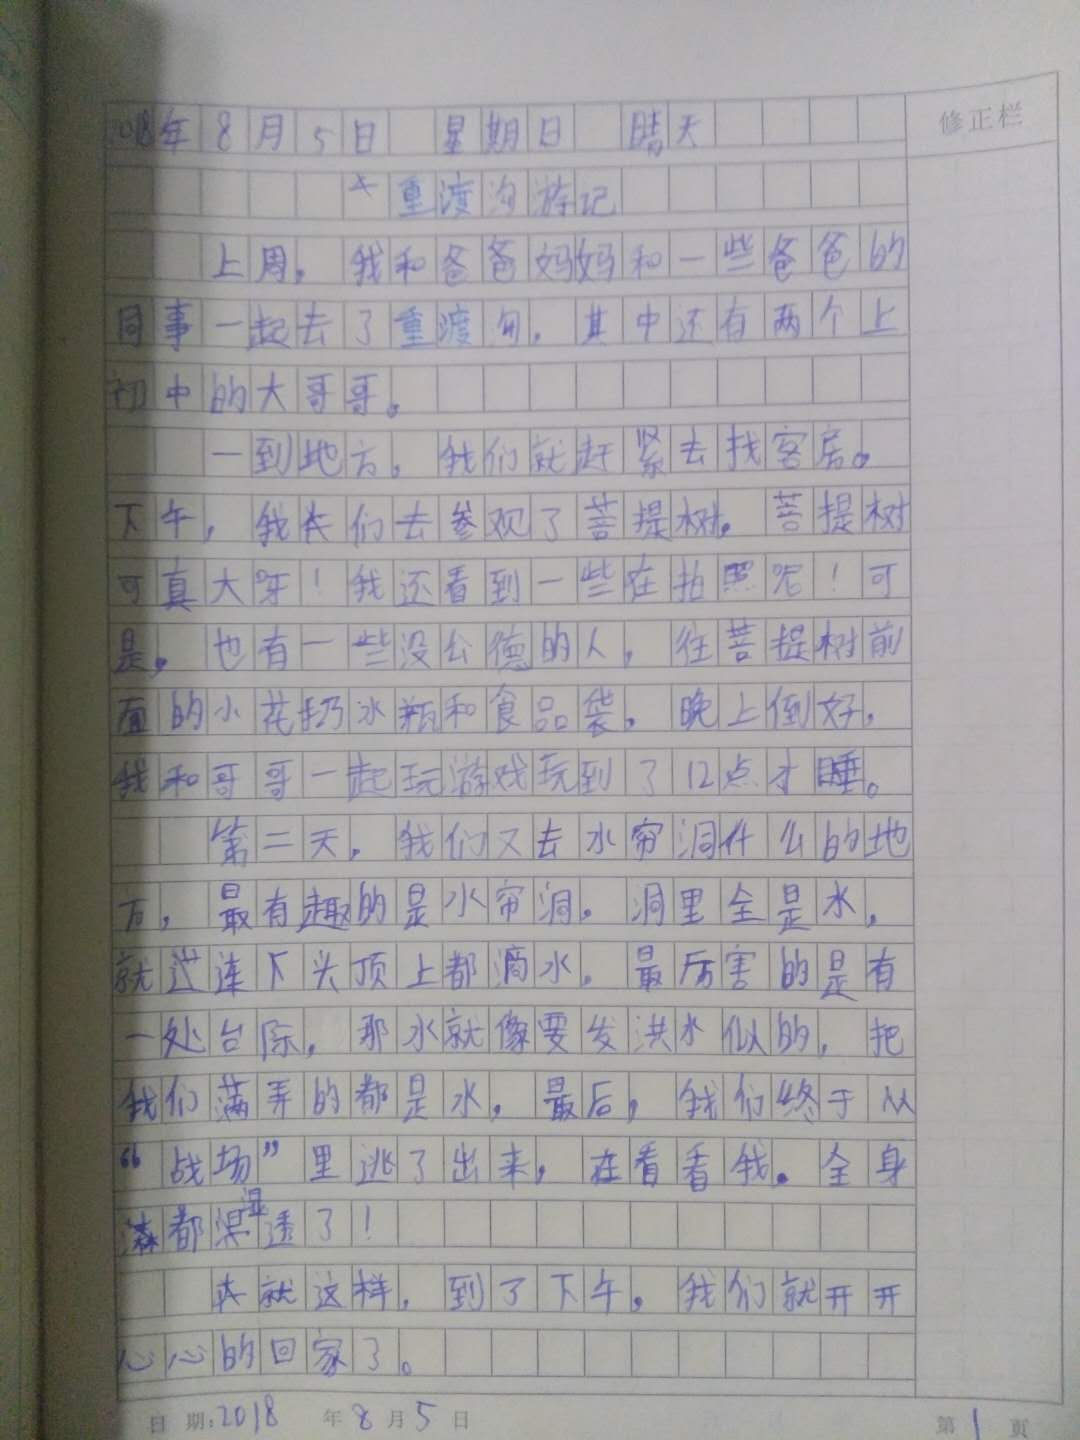 2018年8月5日 星期日 晴天
修正栏
重渡沟游记
上周，我和爸爸妈妈和一些爸爸的
同事一起去了重渡沟，其中还有两个上
初中的大哥哥。
一到地方，我们就赶紧去找客房。
下午，我们去参观了菩提树，菩提树
可真大呀！我还看到一些在拍照呢！可
是，也有一些没公德的人，往菩提树前
面的小花扔水瓶和食品袋。晚上倒好，
我和哥哥一起玩游戏玩到了12点才睡。
第二天，我们又去水帘洞什么的地
方，最有趣的是水帘洞，洞里全是水，
就连下头顶上都滴水，最厉害的是有
一处台际，那水就像要发洪水似的，把
我们满弄的都是水，最后，我们终于从
“战场”里逃了出来，在看看我。全身
都湿透了！
就这样，到了下午，我们就开开
心心的回家了。
日期:2018年8月5日 第1页